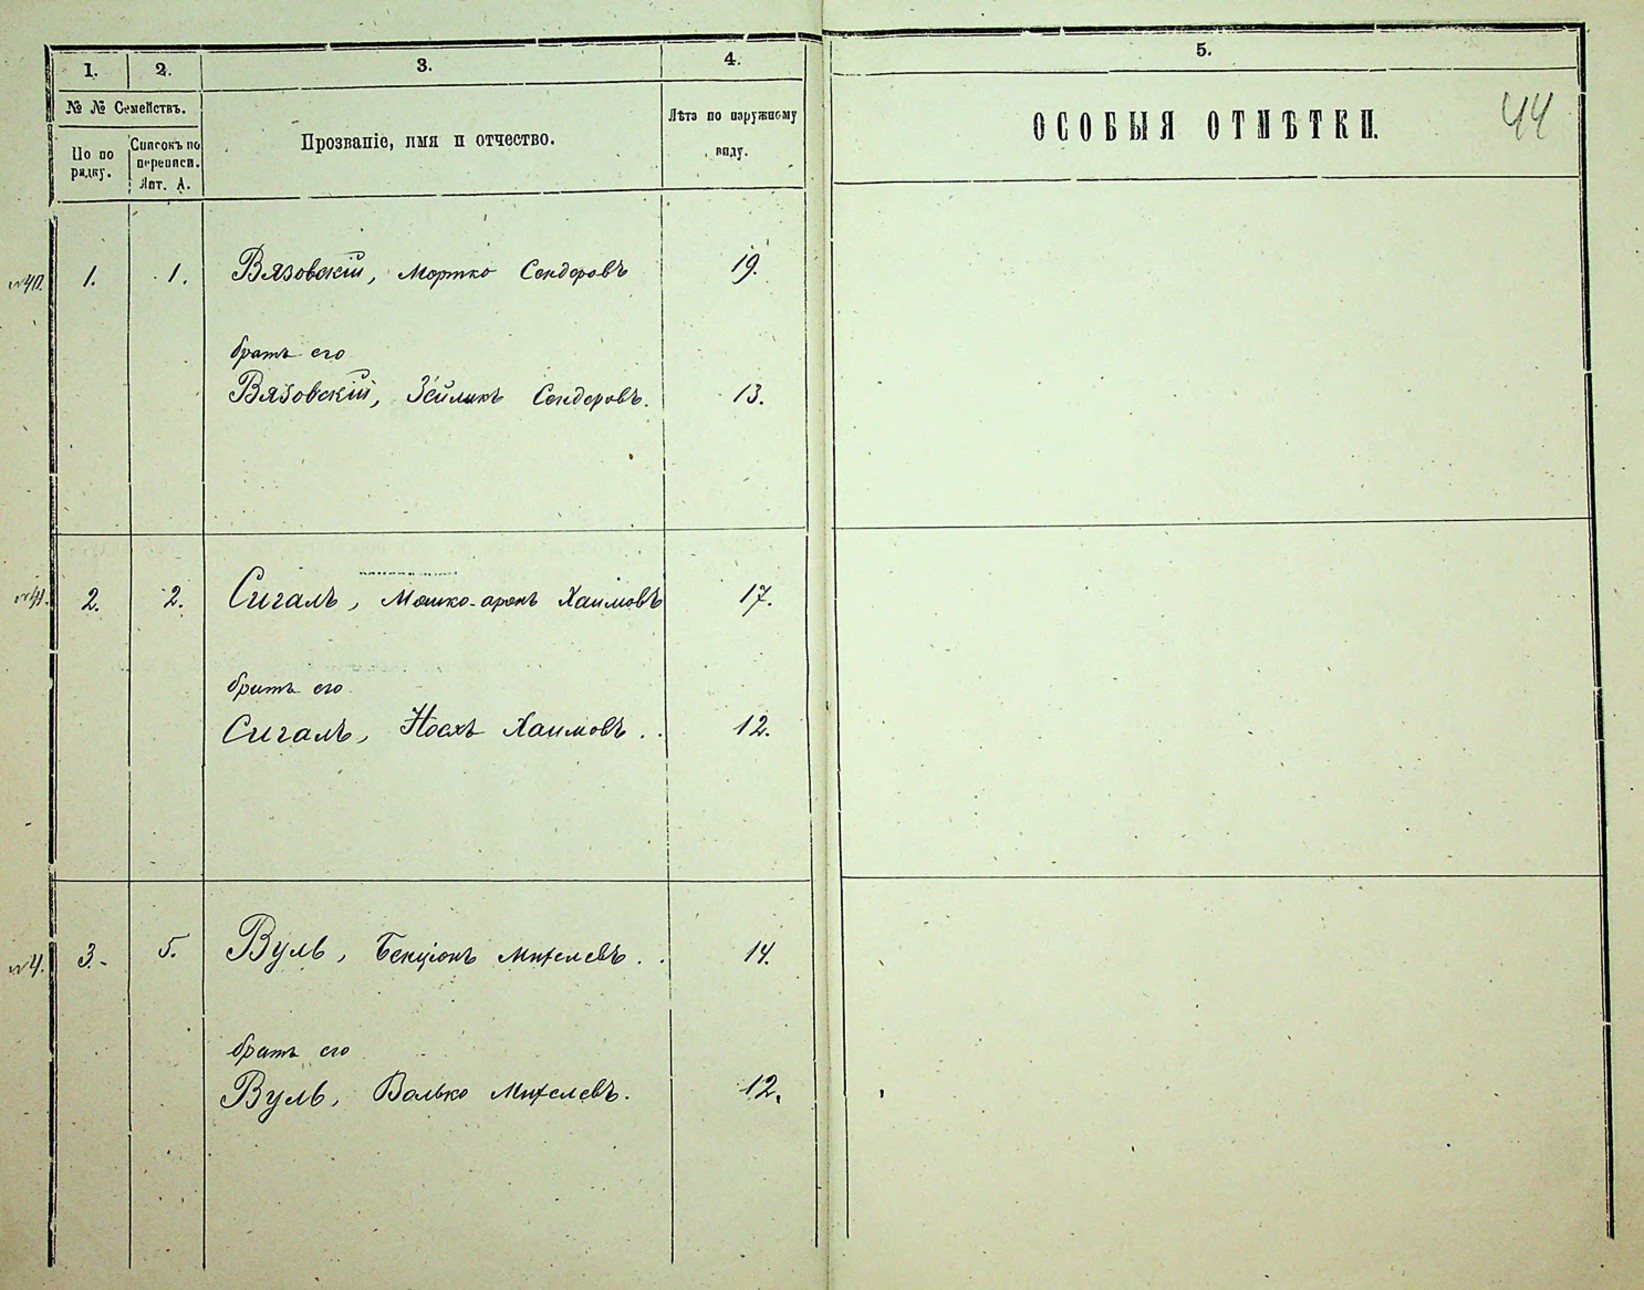 1. 2. 3. 4. 5.
№ № Семействъ.
По по
рядку.
Списокъ по
переписи.
Лит. А.
Прозваніе, имя и отчество.
Лѣта по наружному
виду.
ОСОБЫЯ ОТМѢТКИ.
44
№40. 1. 1. Вязовскій, Мортко Сендеровъ 19.
братъ его
Вязовскій, Зейликъ Сендеровъ. 13.
№41. 2. 2. Сигалъ, Мошко-аронъ Хаимовъ 17.
братъ его
Сигалъ, Носхъ Хаимовъ. 12.
3. 5. Вуль, Бенціонъ Михелевъ. 14.
братъ его
Вуль, Волько Михелевъ. 12.